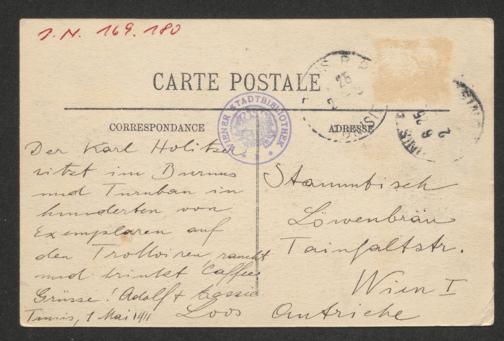 J.N. 169.180
CARTE POSTALE
CORRESPONDANCE
ADRESSE
WIENER STADTBIBLIOTHEK
TUNIS
Der Karl Holitzer
sitzt im Burnus
und Turuban in
hunderten von
Exemplaren auf
den Trottoiren, raucht
und trinkt Caffee
Grüsse! Adolf +
Loos
Tunis, 1 Mai 1911
Stammtisch
Löwenbräu
Tainfaltstr.
Wien I
Autriche